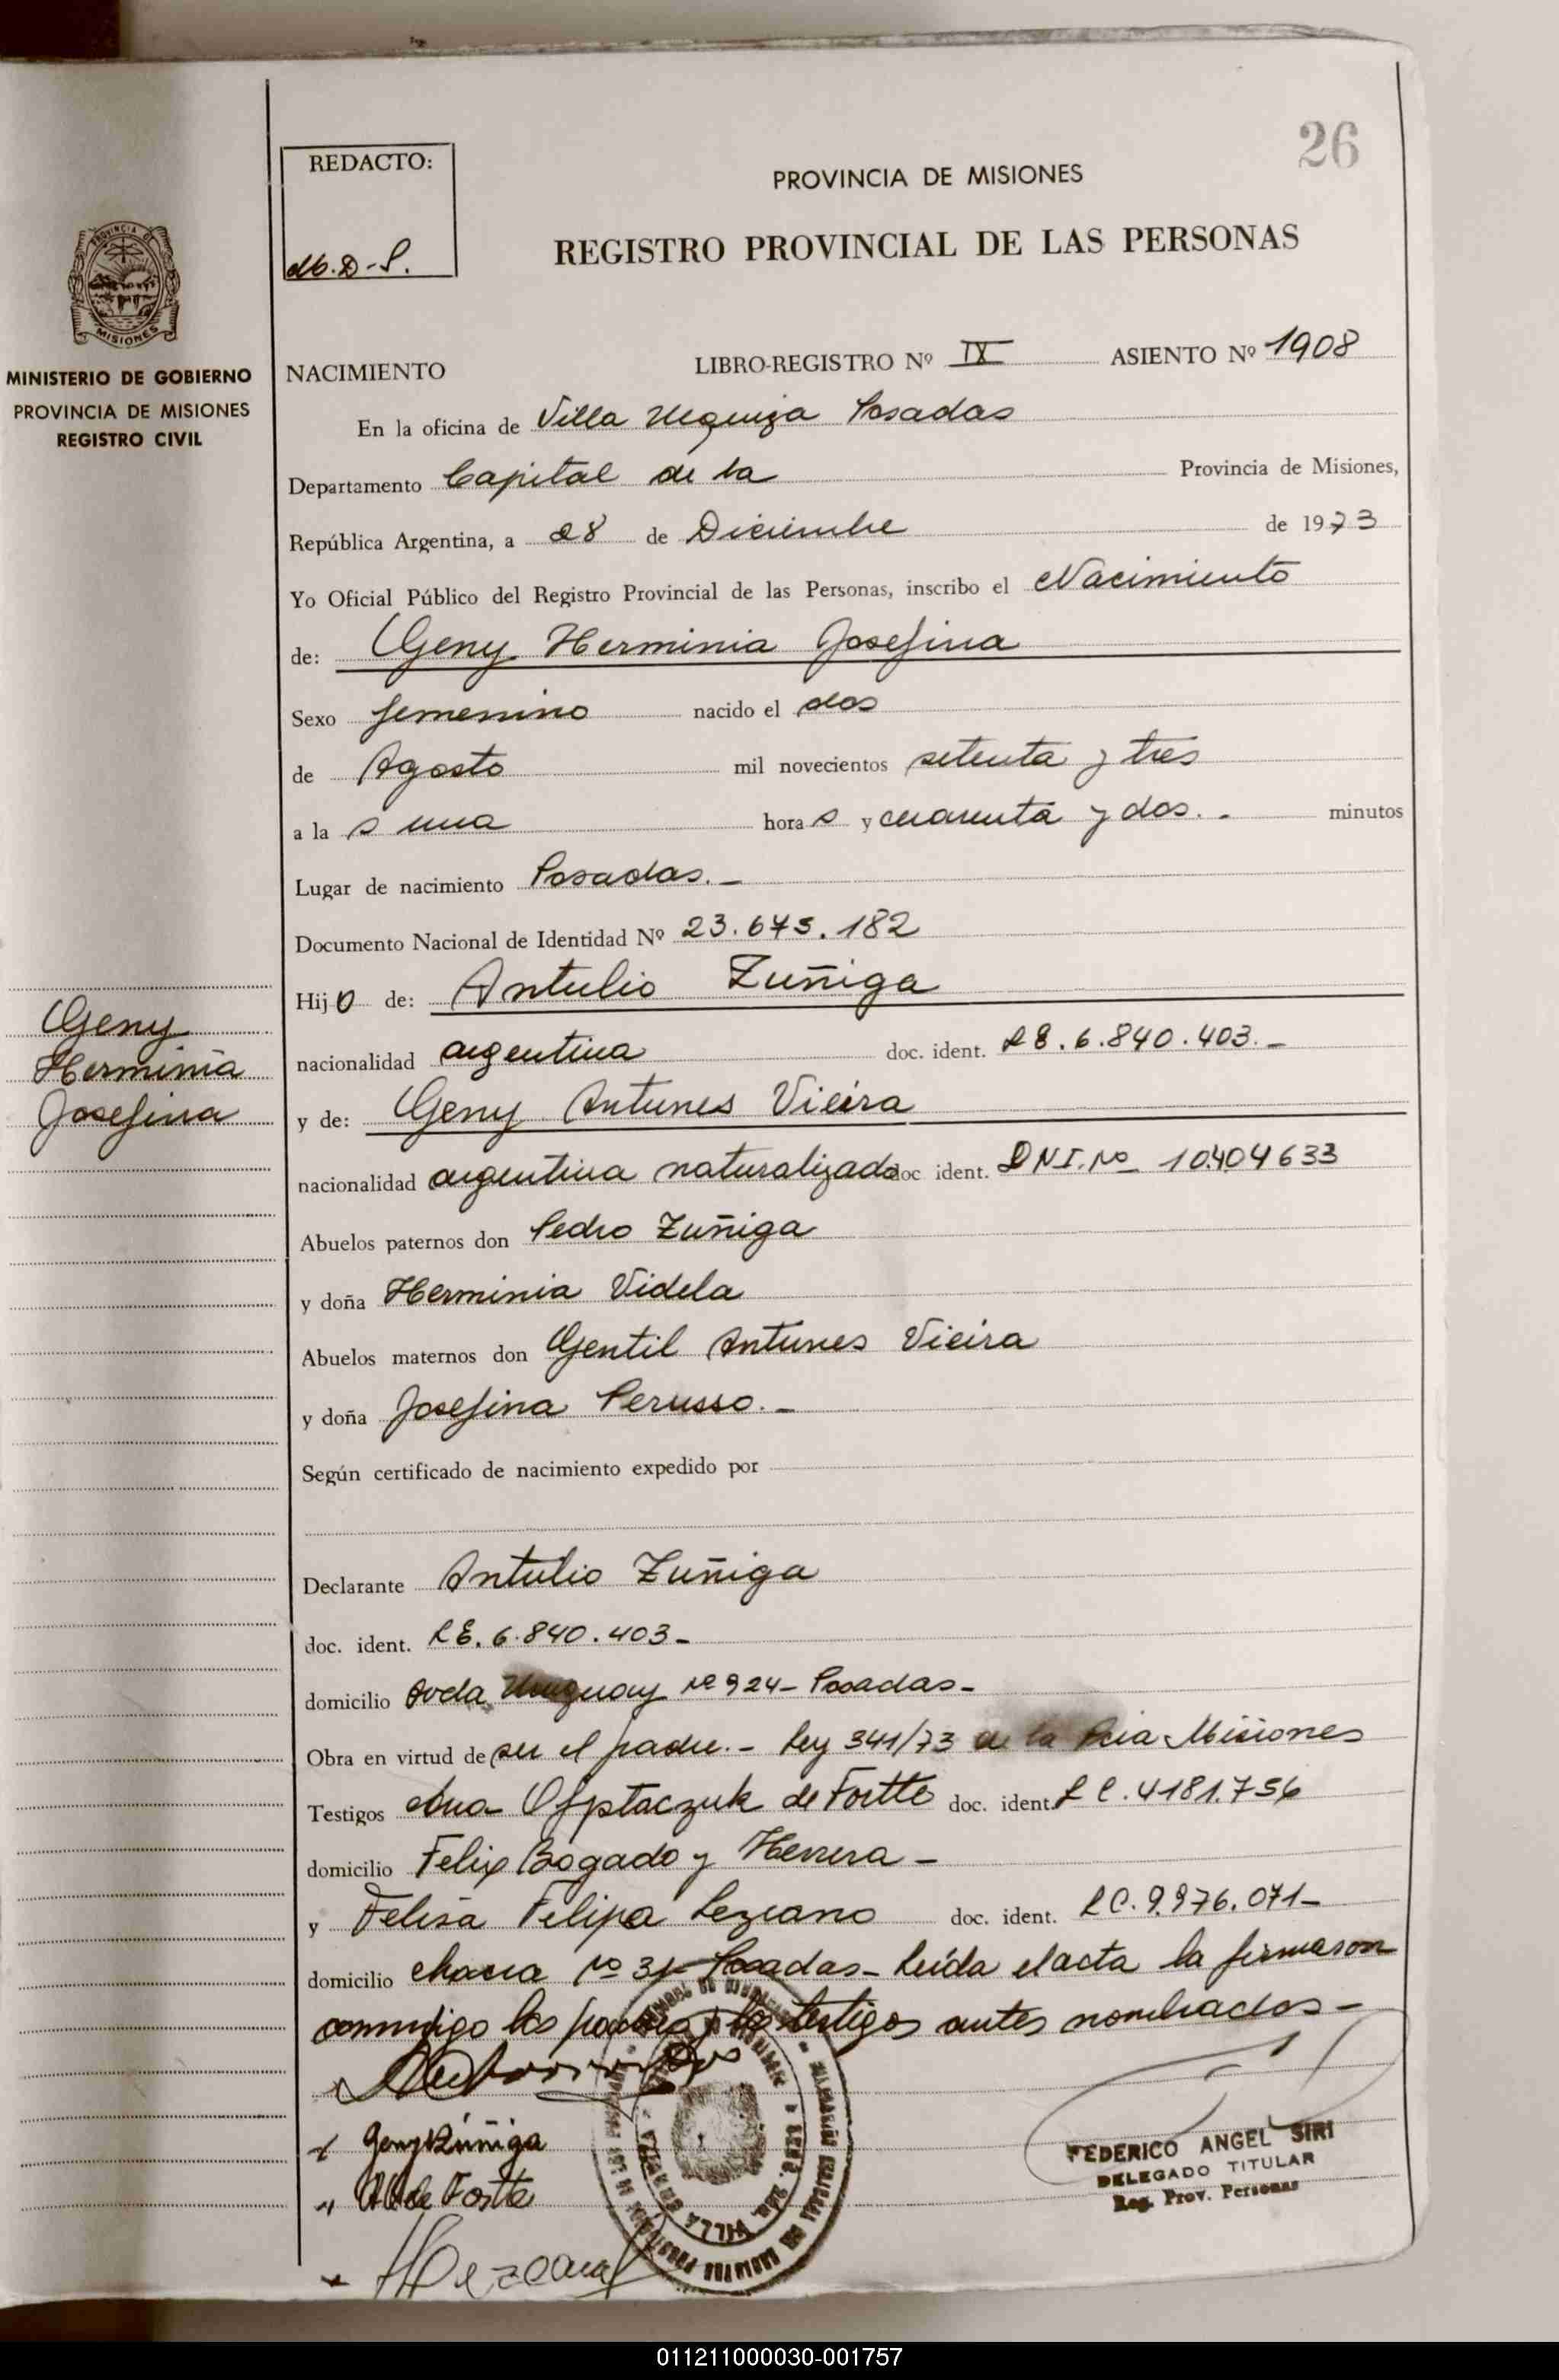 26
REDACTO:
M.D-S.
PROVINCIA DE MISIONES
REGISTRO PROVINCIAL DE LAS PERSONAS
PROVINCIA DE
MISIONES
MINISTERIO DE GOBIERNO
PROVINCIA DE MISIONES
REGISTRO CIVIL
NACIMIENTO LIBRO-REGISTRO Nº IX ASIENTO Nº 1908
En la oficina de Villa Urquiza Posadas
Departamento Capital de la Provincia de Misiones,
República Argentina, a 28 de Diciembre de 1973
Yo Oficial Público del Registro Provincial de las Personas, inscribo el Nacimiento
de: Geny Herminia Josefina
Sexo femenino nacido el dos
de Agosto mil novecientos setenta y tres
a la s una hora s y cuarenta y dos.- minutos
Lugar de nacimiento Posadas.-
Documento Nacional de Identidad Nº 23.675.182
Hij o de: Antulio Zuñiga
Geny
Herminia
Josefina
nacionalidad argentina doc. ident. LE.6.840.403.-
y de: Geny Antunes Vieira
nacionalidad argentina naturalizada doc ident. DNI.Nº 10404633
Abuelos paternos don Pedro Zuñiga
y doña Herminia Videla
Abuelos maternos don Gentil Antunes Vieira
y doña Josefina Perusso.-
Según certificado de nacimiento expedido por
Declarante Antulio Zuñiga
doc. ident. LE.6.840.403-
domicilio Avda Uruguay Nº 924- Posadas-
Obra en virtud de ser el padre.- Ley 341/73 de la Pcia Misiones
Testigos Ana de Fortte doc. ident. LC.4181.756
domicilio Felix Bogado y Herrera-
y Felisa Felipa Lezcano doc. ident. LC.9.976.071-
domicilio chacra Nº 31- Posadas- Leída el acta la firmaron
conmigo los padres y los testigos antes nombrados-
Geny Zúñiga
A O de Fortte
Lezcano
VILLA URQUIZA
FEDERICO ANGEL SIRI
DELEGADO TITULAR
Reg. Prov. Personas
011211000030-001757